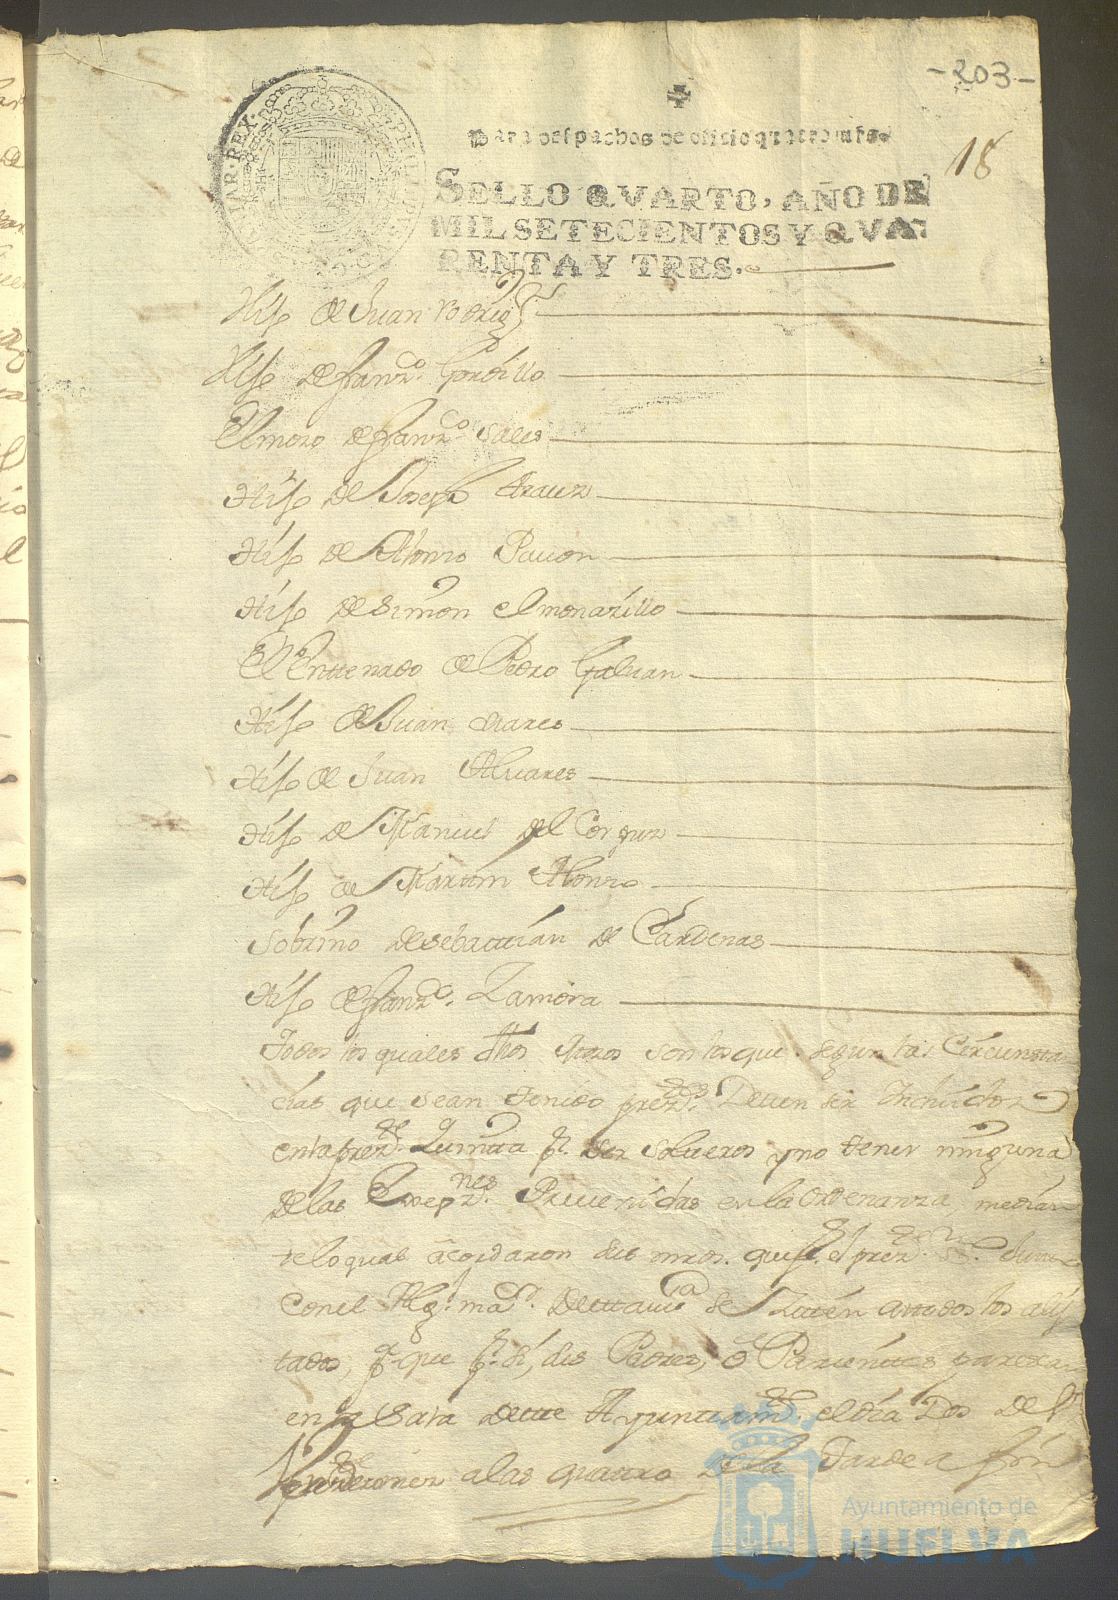 -203-
18
Para despachos de oficio quatro mrs.
SELLO QVARTO, AÑO DE
MIL SETECIENTOS Y QVA-
RENTA Y TRES.
PHILIP
REX
Hijo de Juan rodrigz
Hijo de franco. Gordillo
El moro de franco. Sales
Hijo de Joseph Arauz
Hijo de Alonso Pauon
Hijo de Simon el monazillo
El Enttenado de Pedro Galuan
Hijo de Juan
Hijo de Juan Aluares
Hijo de Manuel del
Hijo de Martin Alonso
Sobrino de sebasttian de Cardenas
Hijo de franco. Zamora
Todos los quales dhos mozos son los que segun las Circunstan
cias que sean tenido presttes. Deuen ser Incluidos
en la presentte. Quintta pr. ser solteros y no tener ninguna
de las Excepnes. Preuenidas en la ordenanza, median
te lo qual acordaron sus mrds. que pr. el presentte
Con el Alg. mar. de esta uilla se Zitten a ttodos los alis
tados, pa. que pr. si, sus Padres, o Parienttes parezcan
en la Sala de este Ayuntamto. el dia Dos del
a las quattro de la Tarde a fin
Ayuntamiento de
HUELVA